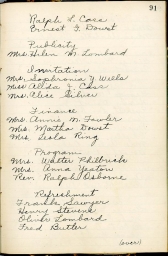 91
Ralph L. Cass
Ernest F. Doust
Publicity
Mrs. Helen M. Lombard
Invitation
Mrs. Sophronia Y. Wells
Miss Alida J. Cass
Mrs. Elsie Silver
Finance
Mrs. Annie M. Fowler
Mrs. Martha Doust
Mrs. Leila Ring
Program
Mrs. Walter Philbrick
Mrs. Anna Yeaton
Rev. Ralph Osborne
Refreshment
Frank Sawyer
Henry Stevens
Oliver Lombard
Fred Butler
(over)